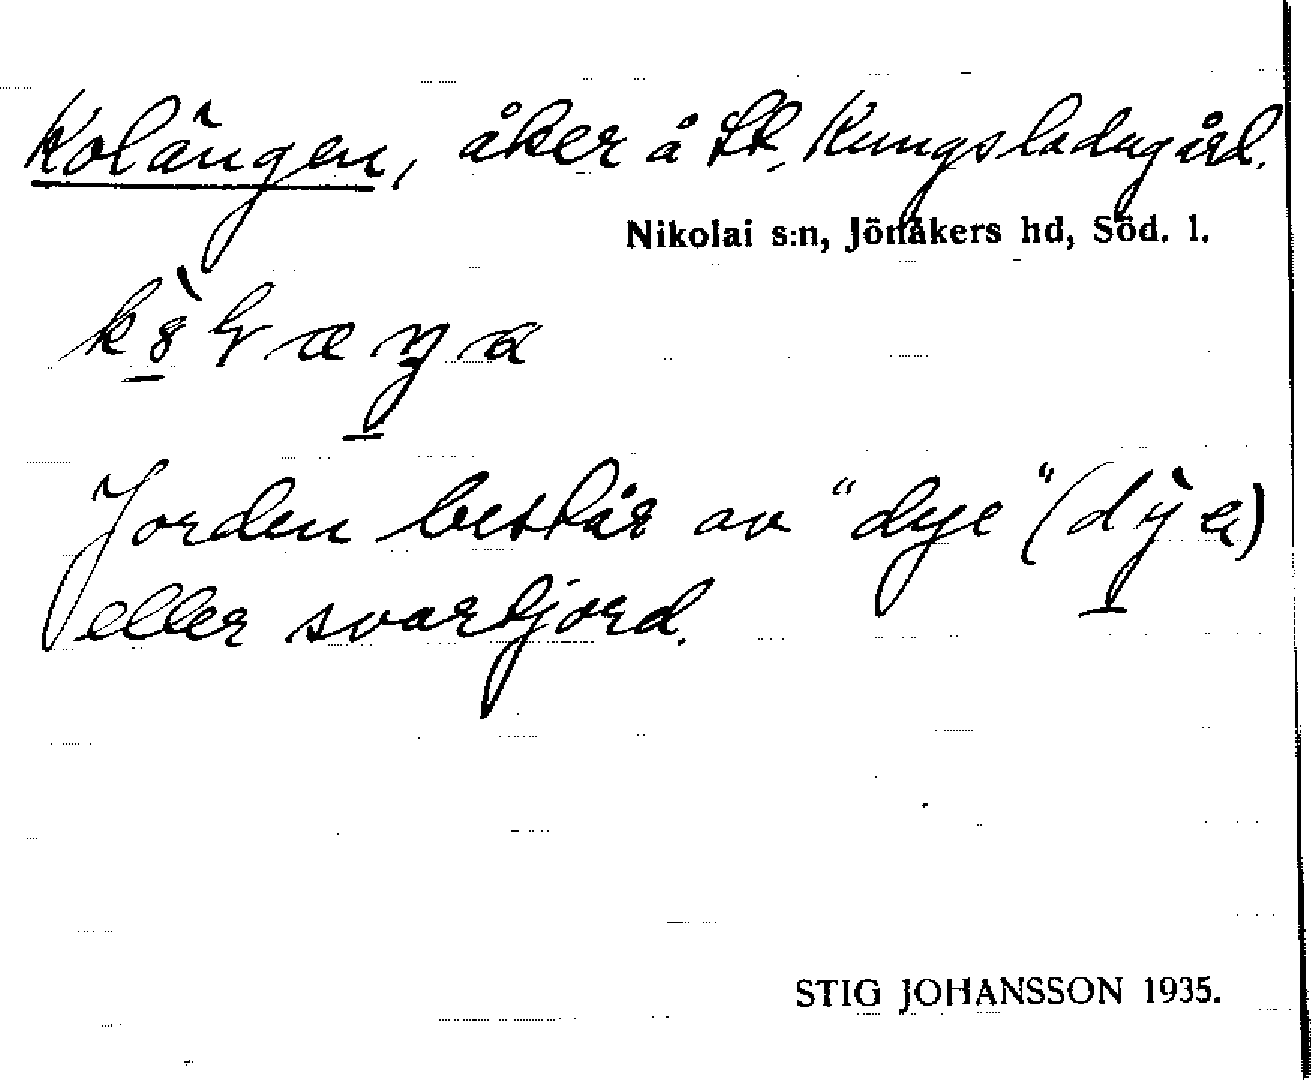 Kolängen, åker å St. Kungsladugård.
Nikolai s:n, Jönåkers hd, Söd. l.
Jorden består av "dye" (dỳa)
eller svartjord.
STIG JOHANSSON 1935.